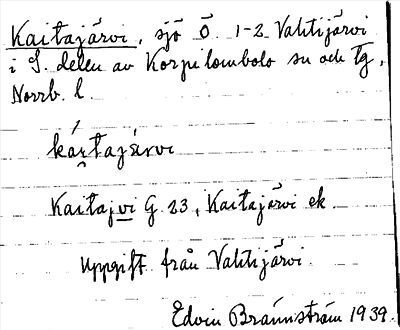 Kaitajärvi, sjö Ö. 1-2 Vahtijärvi
i S. delen av Korpilombolo sn och tg,
Norrb. l.
káɪtajærvi
Kaitajvi G 23, Kaitajärvi ek
Uppgift från Vahtijärvi.
Edvin Brännström 1939.